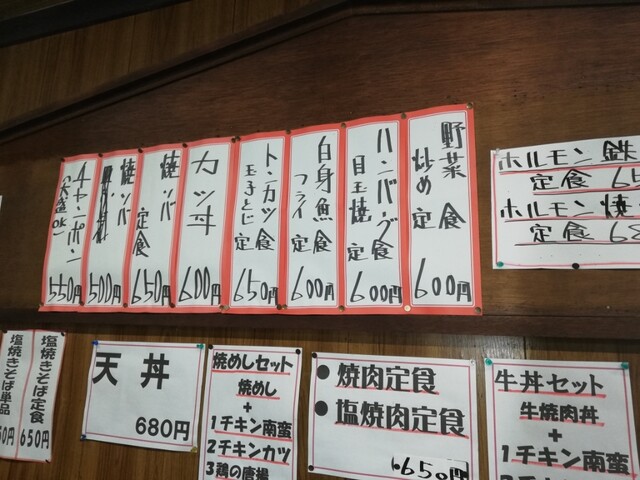 野菜
炒め定食
600円
ハンバーグ
目玉焼定食
600円
白身魚
フライ定食
600円
トンカツ
玉子とじ定食
650円
カツ丼
600円
焼ソバ
定食
650円
焼ソバ
500円
チャンポン
(大盛OK)
550円
ホルモン鉄
定食 65
ホルモン焼
定食 68
塩焼きそば定食
650円
塩焼きそば単品
50円
天丼
680円
焼めしセット
焼めし
+
1チキン南蛮
2チキンカツ
3鶏の唐揚
● 焼肉定食
● 塩焼肉定食
650円
牛丼セット
牛焼肉丼
+
1チキン南蛮